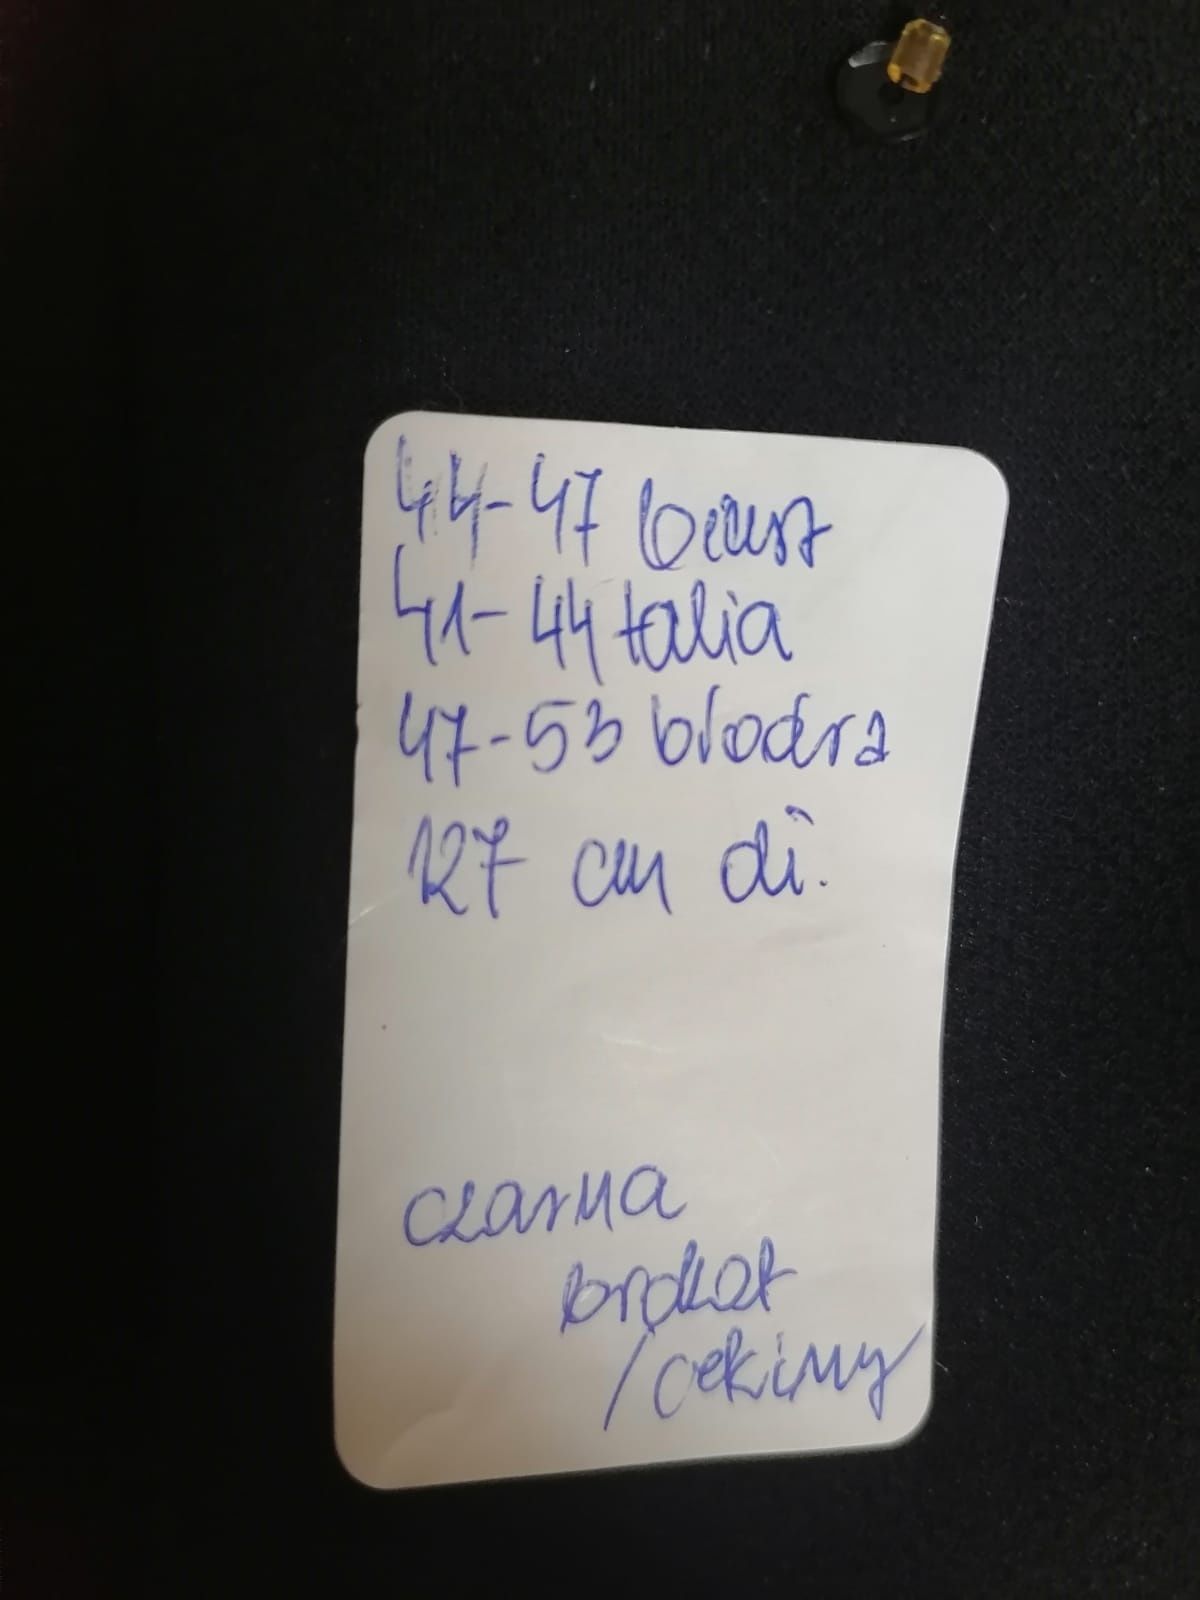 44-47 biust
41-44 talia
47-53 biodra
127 cm dł.
czarna
brokat
/cekiny